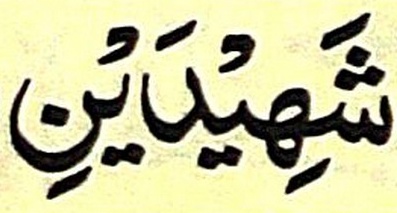 شَهِيْدَيْنِ